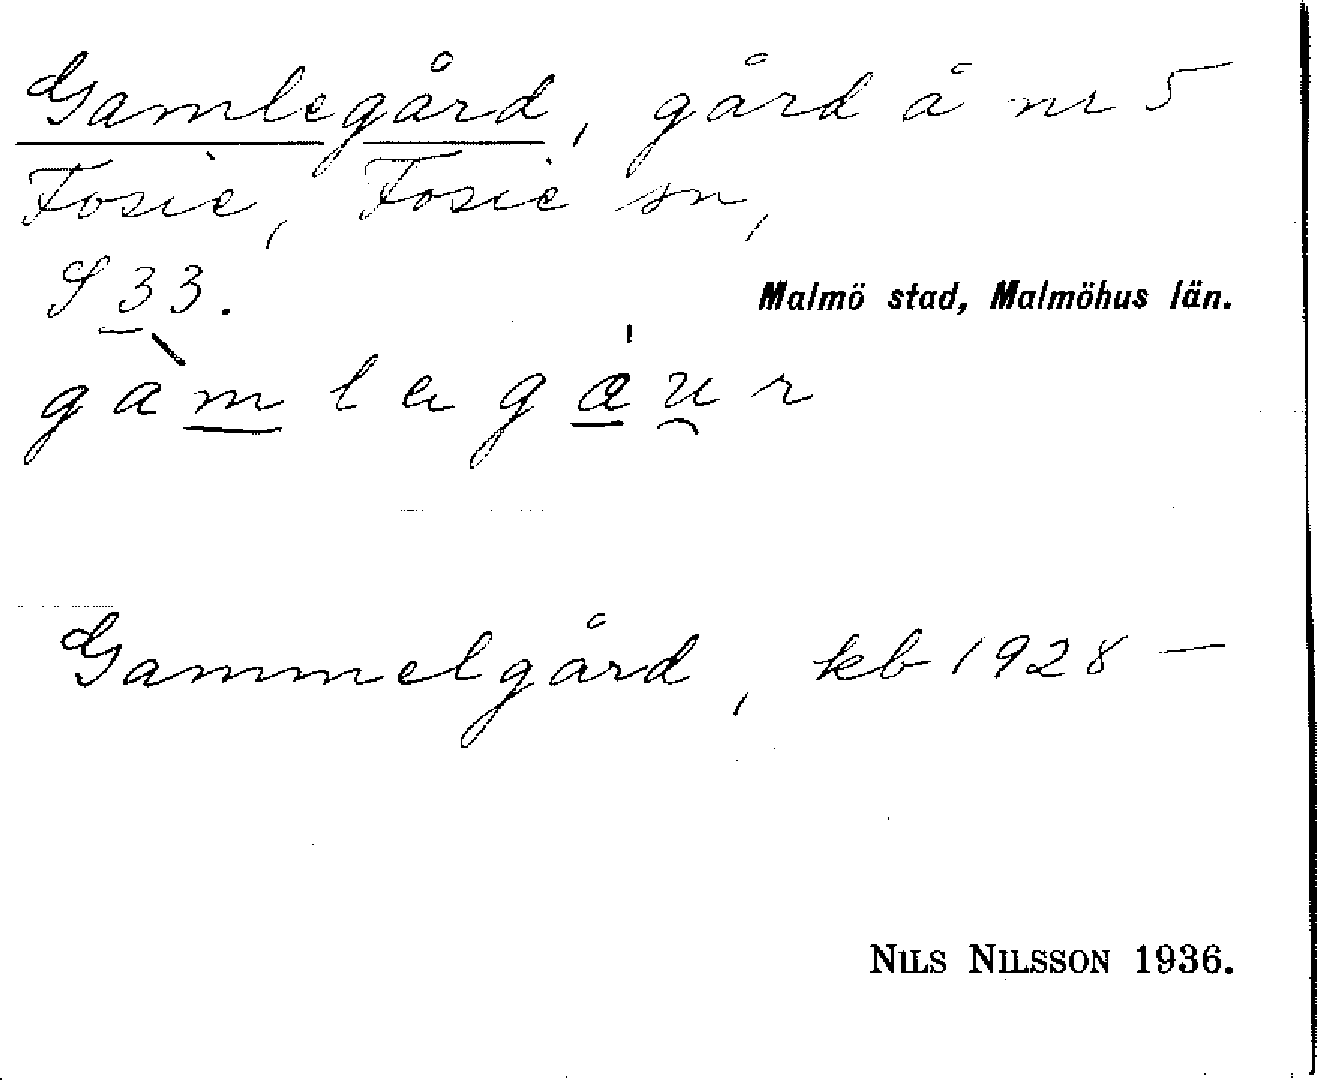 Gamlegård, gård å nr 5
Fosie, Fosie sn,
S 33.
Malmö stad, Malmöhus län.
gàmlagæ̍u̯r
Gammelgård, kb 1928 —
NILS NILSSON 1936.